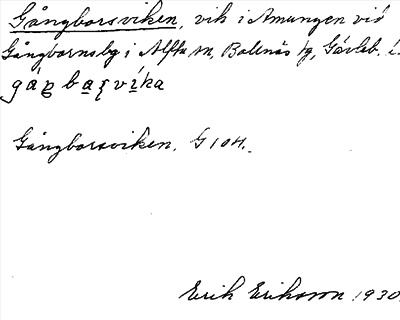 Gångborsviken, vik i Amungen vid
Gångbornsbg i Alfta sn, Bollnäs tg, Gävleb. l.
Gångborsviken. G 104.
Erik Erikson 1930.